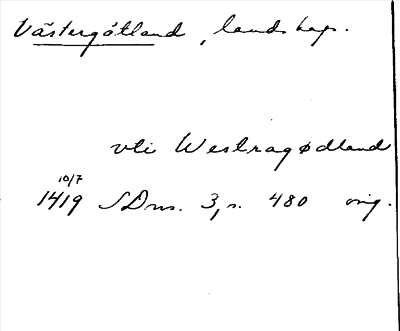 Västergötland, landskap.
vti Westragødland
10/7
1419 SDns. 3, s. 480 orig.